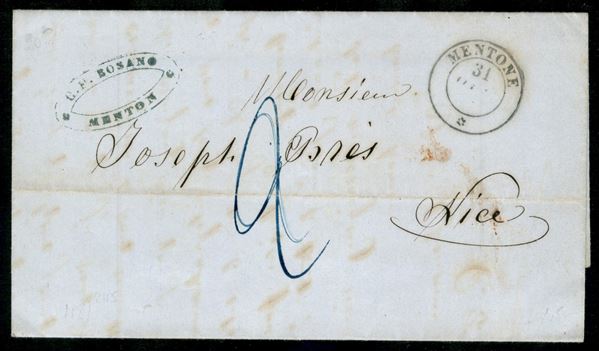 C. F. BOSANO
MENTON
MENTONE
31
Monsieur
Joseph Brès
2
Nice